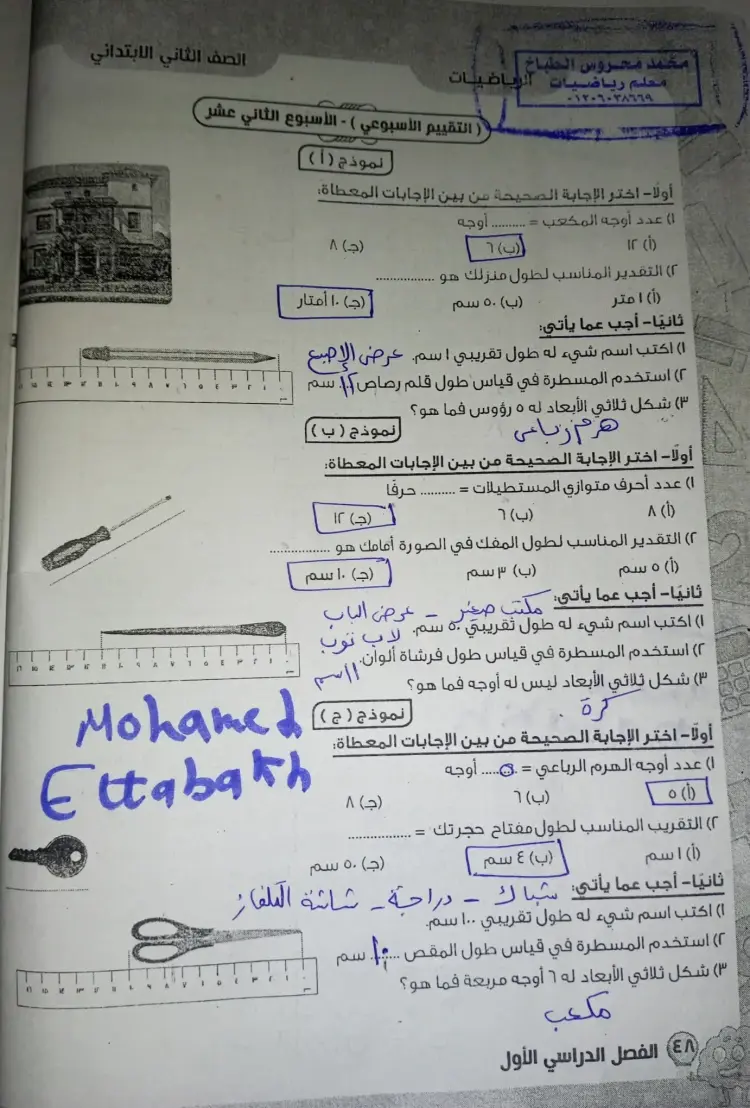 الصف الثاني الابتدائي
الرياضيات
محمد محروس الطباخ
معلم رياضيات
٠١٢٠٦٠٣٨٦٦٩
( التقييم الأسبوعي ) - الأسبوع الثاني عشر
نموذج ( أ )
أولًا- اختر الإجابة الصحيحة من بين الإجابات المعطاة:
١) عدد أوجه المكعب = .......... أوجه
(أ) ١٢ (ب) ٦ (جـ) ٨
٢) التقدير المناسب لطول منزلك هو ................
(أ) ١ متر (ب) ٥٠ سم (جـ) ١٠ أمتار
ثانيًا- أجب عما يأتي:
١) اكتب اسم شيء له طول تقريبي ١ سم. عرض الإصبع
٢) استخدم المسطرة في قياس طول قلم رصاص ١٢ سم
٣) شكل ثلاثي الأبعاد له ٥ رؤوس فما هو؟
هرم رباعى
نموذج ( ب )
أولًا- اختر الإجابة الصحيحة من بين الإجابات المعطاة:
١) عدد أحرف متوازي المستطيلات = .......... حرفًا
(أ) ٨ (ب) ٦ (جـ) ١٢
٢) التقدير المناسب لطول المفك في الصورة أمامك هو ................
(أ) ٥ سم (ب) ٣ سم (جـ) ١٠ سم
ثانيًا- أجب عما يأتي: مكتب صغير - عرض الباب
١) اكتب اسم شيء له طول تقريبي ٥٠ سم. لاب توب
٢) استخدم المسطرة في قياس طول فرشاة ألوان. ١١ سم
٣) شكل ثلاثي الأبعاد ليس له أوجه فما هو؟
كرة
نموذج ( ج )
Mohamed
Ettabakh
أولًا- اختر الإجابة الصحيحة من بين الإجابات المعطاة:
١) عدد أوجه الهرم الرباعي = ..٥.... أوجه
(أ) ٥ (ب) ٦ (جـ) ٨
٢) التقريب المناسب لطول مفتاح حجرتك = ................
(أ) ١ سم (ب) ٤ سم (جـ) ٥٠ سم
ثانيًا- أجب عما يأتي: شباك - دراجة - شاشة التلفاز
١) اكتب اسم شيء له طول تقريبي ١٠٠ سم.
٢) استخدم المسطرة في قياس طول المقص ..١٠.. سم
٣) شكل ثلاثي الأبعاد له ٦ أوجه مربعة فما هو؟
مكعب
٤٨ الفصل الدراسي الأول